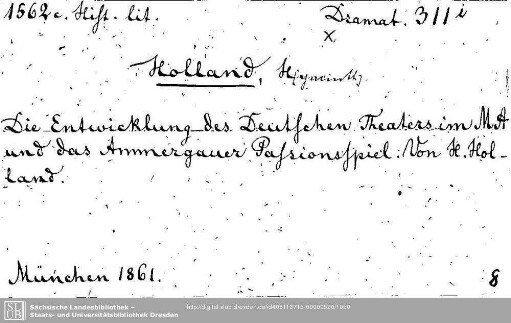 1562 c. Hist. lit.
Dramat. 311 i
x
Holland, Hyacinth
Die Entwicklung des Deutschen Theaters im M.A
und das Ammergauer Passionsspiel. Von H. Hol-
land.
München 1861.
8
SLUB
Sächsische Landesbibliothek –
Staats- und Universitätsbibliothek Dresden